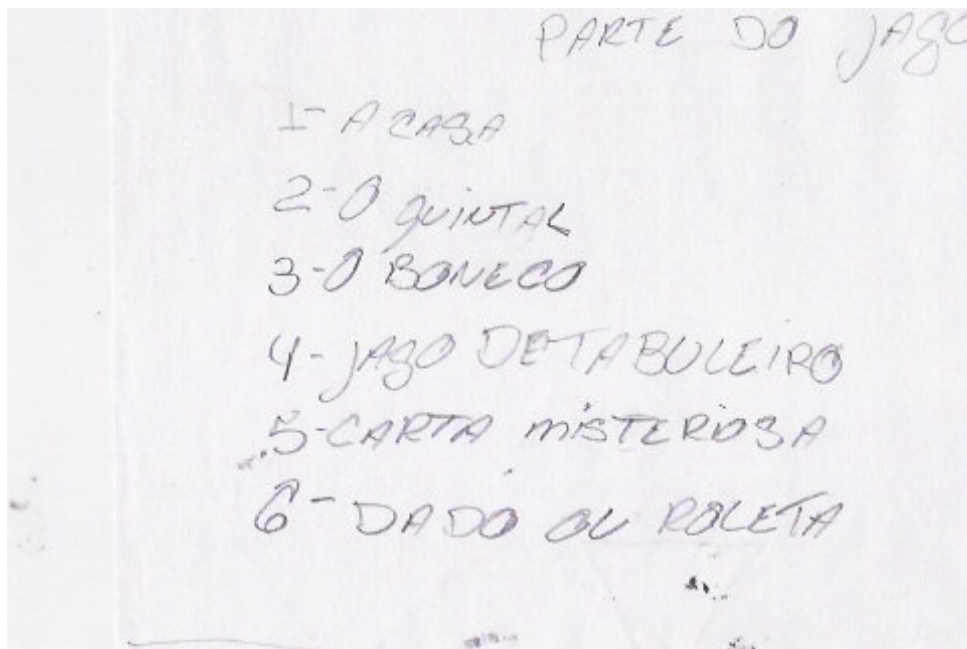 PARTE DO JAGO
1- A CASA
2- O QUINTAL
3- O BONECO
4- JAGO DE TABULEIRO
5- CARTA MISTERIOSA
6- DADO OU ROLETA